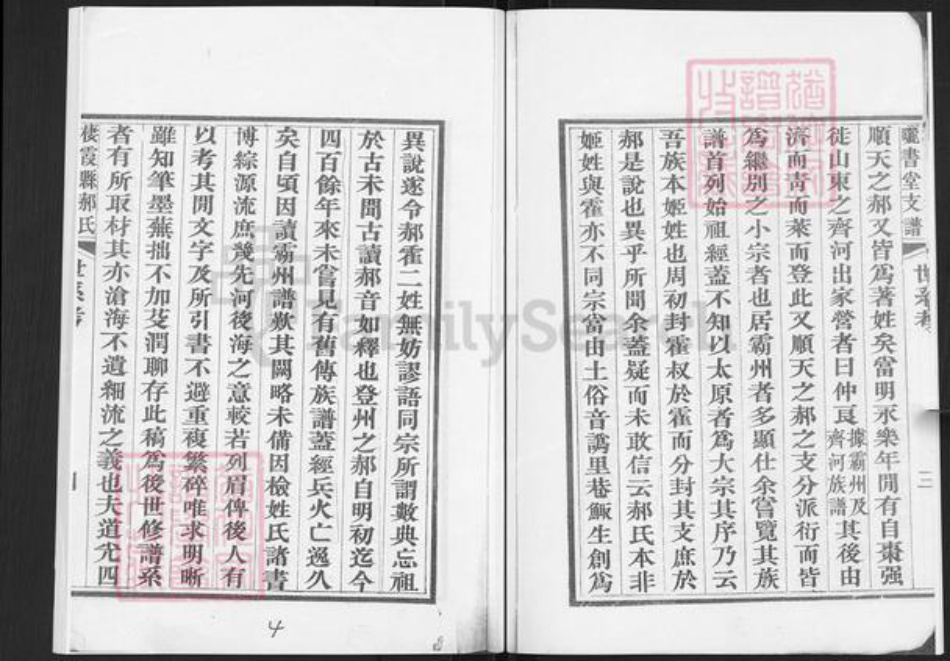 曬書堂支譜
世系考
二
順天之郝又皆爲著姓矣當明永樂年閒有自棗强
徙山東之齊河出家營者曰仲良據霸州及齊河族譜其後由
濟而青而萊而登此又順天之郝之支分派衍而皆
爲繼別之小宗者也居霸州者多顯仕余嘗覽其族
譜首列始祖經蓋不知以太原者爲大宗其序乃云
吾族本姬姓也周初封霍叔於霍而分封其支庶於
郝是說也異乎所聞余蓋疑而未敢信云郝氏本非
姬姓與霍亦不同宗當由土俗音譌里巷鯫生創爲
異說遂令郝霍二姓無妨謬語同宗所謂數典忘祖
於古未聞古讀郝音如釋也登州之郝自明初迄今
四百餘年來未嘗見有舊傳族譜蓋經兵火亡逸久
矣自頃因讀霸州譜歎其闕略未備因檢姓氏諸書
博綜源流庶幾先河後海之意較若列眉俾後人有
以考其閒文字及所引書不避重複繁碎唯求明晰
雖知筆墨蕪拙不加芟潤聊存此稿爲後世修譜系
者有所取材其亦滄海不遺細流之義也夫道光四
棲霞縣郝氏
世系考
4
FamilySearch